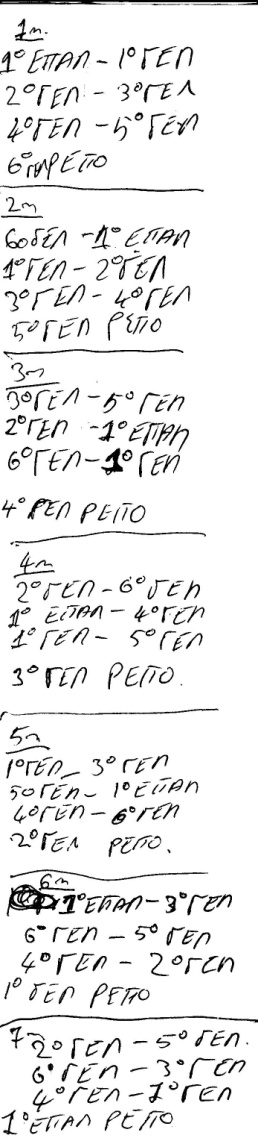 1η.
1° ΕΠΑΛ - 1° ΓΕΛ
2° ΓΕΛ - 3° ΓΕΛ
4° ΓΕΛ - 5° ΓΕΛ
6° ΓΕΛ ΡΕΠΟ
2η
6ο ΓΕΛ - 1° ΕΠΑΛ
1° ΓΕΛ - 2° ΓΕΛ
3° ΓΕΛ - 4° ΓΕΛ
5ο ΓΕΛ ΡΕΠΟ
3η
3ο ΓΕΛ - 5° ΓΕΛ
2° ΓΕΛ - 1° ΕΠΑΛ
6° ΓΕΛ - 1° ΓΕΛ
4° ΓΕΛ ΡΕΠΟ
4η
2° ΓΕΛ - 6° ΓΕΛ
1° ΕΠΑΛ - 4° ΓΕΛ
1° ΓΕΛ - 5° ΓΕΛ
3° ΓΕΛ ΡΕΠΟ.
5η
1° ΓΕΛ - 3° ΓΕΛ
5ο ΓΕΛ - 1° ΕΠΑΛ
4ο ΓΕΛ - 6° ΓΕΛ
2° ΓΕΛ ΡΕΠΟ.
6η
1° ΕΠΑΛ - 3° ΓΕΛ
6° ΓΕΛ - 5° ΓΕΛ
4° ΓΕΛ - 2° ΓΕΛ
1° ΓΕΛ ΡΕΠΟ
7
2° ΓΕΛ - 5° ΓΕΛ.
6° ΓΕΛ - 3° ΓΕΛ
4° ΓΕΛ - 1° ΓΕΛ
1° ΕΠΑΛ ΡΕΠΟ